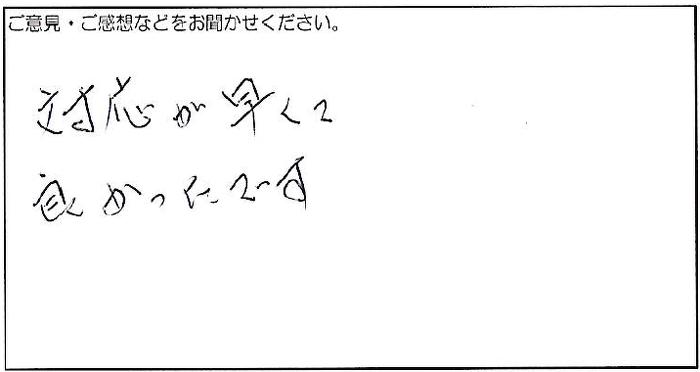 ご意見・ご感想などをお聞かせください。
対応が早くて
良かったです